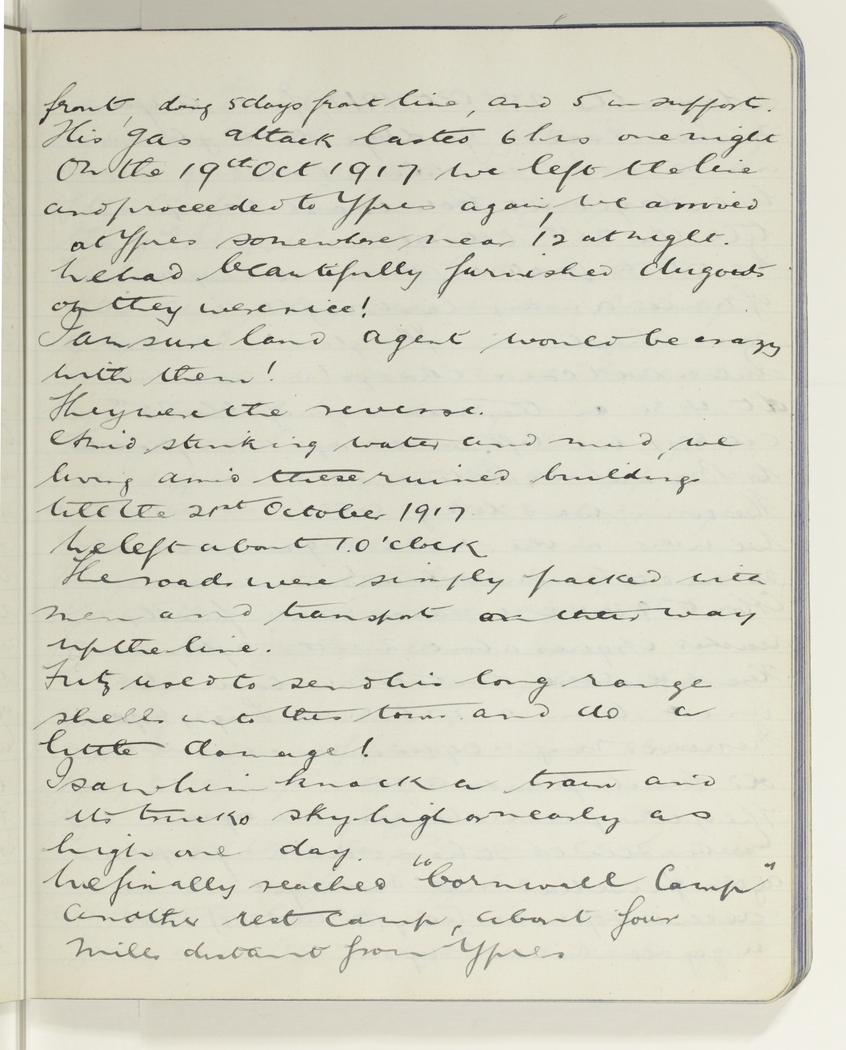 front, doing 5 days front line, and 5 in support.
His gas attack lasted 6 hrs one night
On the 19th Oct 1917 we left the line
and proceeded to Ypres again, we arrived
at Ypres somewhere near 12 at night.
We had beautifully furnished dugouts
oh they were nice!
I am sure land agent would be crazy
with them!
They were the reverse.
Amid stinking water and mud, we
living amid these ruined buildings
till the 21st October 1917
We left about 1 O'clock
The roads were simply packed with
men and transport on their way
up the line.
Fritz used to send his long range
shells into this town and do a
little damage!
I saw him knock a train and
its trucks sky high or nearly as
high one day.
We finally reached to "Cornwall Camp"
another rest camp, about four
miles distant from Ypres